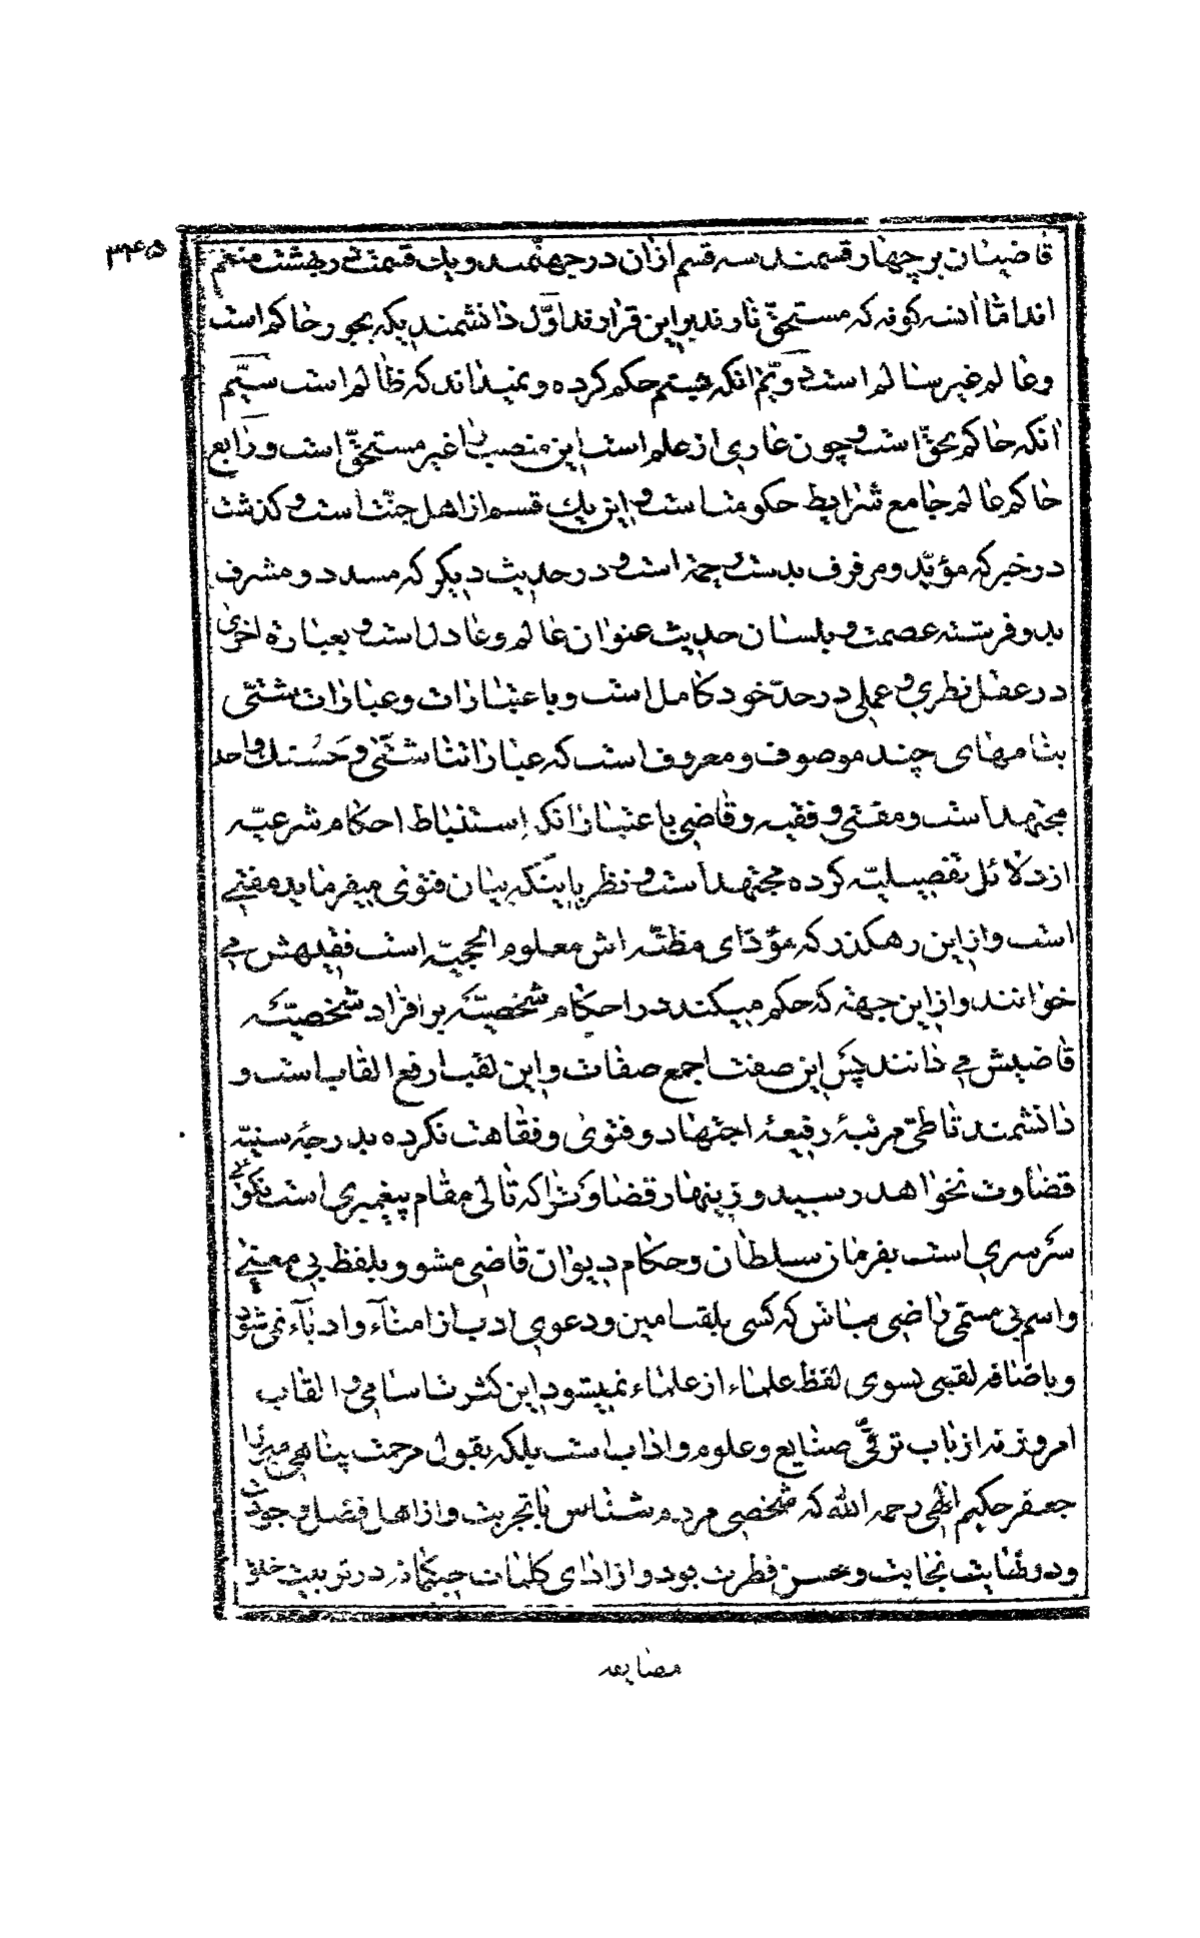 ۳۴۵
قاضیان بر چهار قسمند سه قسم ازان در جهنّمند و یک قسمت در بهشت متنعّم
اند امّا انسه کونه که مستحقّ نارند بر این قرارند اوّل دانشمندیکه بجور حاکم است
و عالم غیر سالم است دویّم انکه بستم حکم کرده و نمیداند که ظالم است سیّم
انکه حاکم بحقّ است و چون عاری از علم است این منصب را غیر مستحقّ است و رابع
حاکم عالم جامع شرایط حکومت است و این یک قسم از اهل جنّت است و کذشت
در خبر که مؤیّد و مرفرف بدست و چه است و در حدیث دیکر که مسدد و مشرف
بدو فرشته عصمت و بلسان حدیث عنوان عالم و عادل است و بعبارة اخری
در عقل نظری و عملی در حدّ خود کامل است و باعتبارات و عبارات شتّی
بنامهای چند موصوف و معروف است که عباراتنا شتّی و حسنک واحد
مجتهد است و مفتی و فقیه و قاضی باعتبار انکه استنباط احکام شرعیّه
از دلائل تفصیلیّه کرده مجتهد است و نظر باینکه بیان فتوی میفرماید مفتی
است و از این رهکذر که مؤدّای مظنّه اش معلوم الحجیّه است فقیهش می
خوانند و از این جهة که حکم میکند در احکام شخصیّه بر افراد شخصیّه
قاضیش می دانند پس این صفت اجمع صفات و این لقب ارفع القاب است و
دانشمند تا طی مرتبهٔ رفیعهٔ اجتهاد و فتوی و فقاهت نکرده بدرجهٔ سنیّه
قضاوت نخواهد رسید و زینهار قضاوت را که تالی مقام پیغمبری است نکوئی
سرسری است بفرمان سلطان و حکام دیوان قاضی مشو و بلفظ بی معنی
و اسم بی مسمی راضی مباش که کسی بلقب امین و دعوی ادب از امناء و ادباء نمی شود
و باضافه لقبی بسوی لفظ علماء از علماء نمیشود این کثرت اسامی و القاب
امروز نه از باب ترقّی صنایع و علوم و اداب است بلکه بقول مرحمت پناهی میرزا
جعفر حکیم الهی رحمه الله که شخصی مردم شناس با تجربت و از اهل فضل و جودت
و دو طابت نجابت و حسن فطرت بود و از ادای کلمات حکیمانه در تربیت خلق
مضایقه